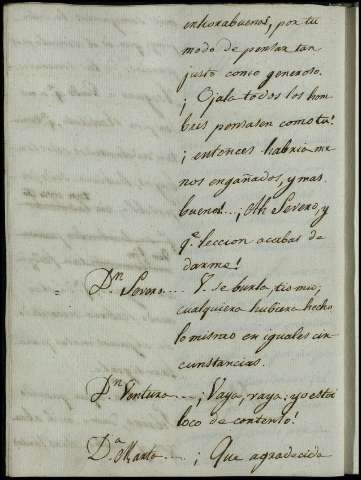 enhorabuena, por tu
modo de pensar tan
justo como generoso.
¡Ojala todos los hom
bres pensasen como tu!
¡entonces habria me
nos engañados, y mas
buenos!...¡Ah Severo, y
q.e leccion acabas de
darme!
D.n Severo.... V. se burla, tio mio;
cualquiera hubiera hecho
lo mismo en iguales cir
cunstancias.
D.n Ventura.... ¡Vaya, vaya; yo estoi
loco de contento!
D.a Marta.... ¡Que agradecida